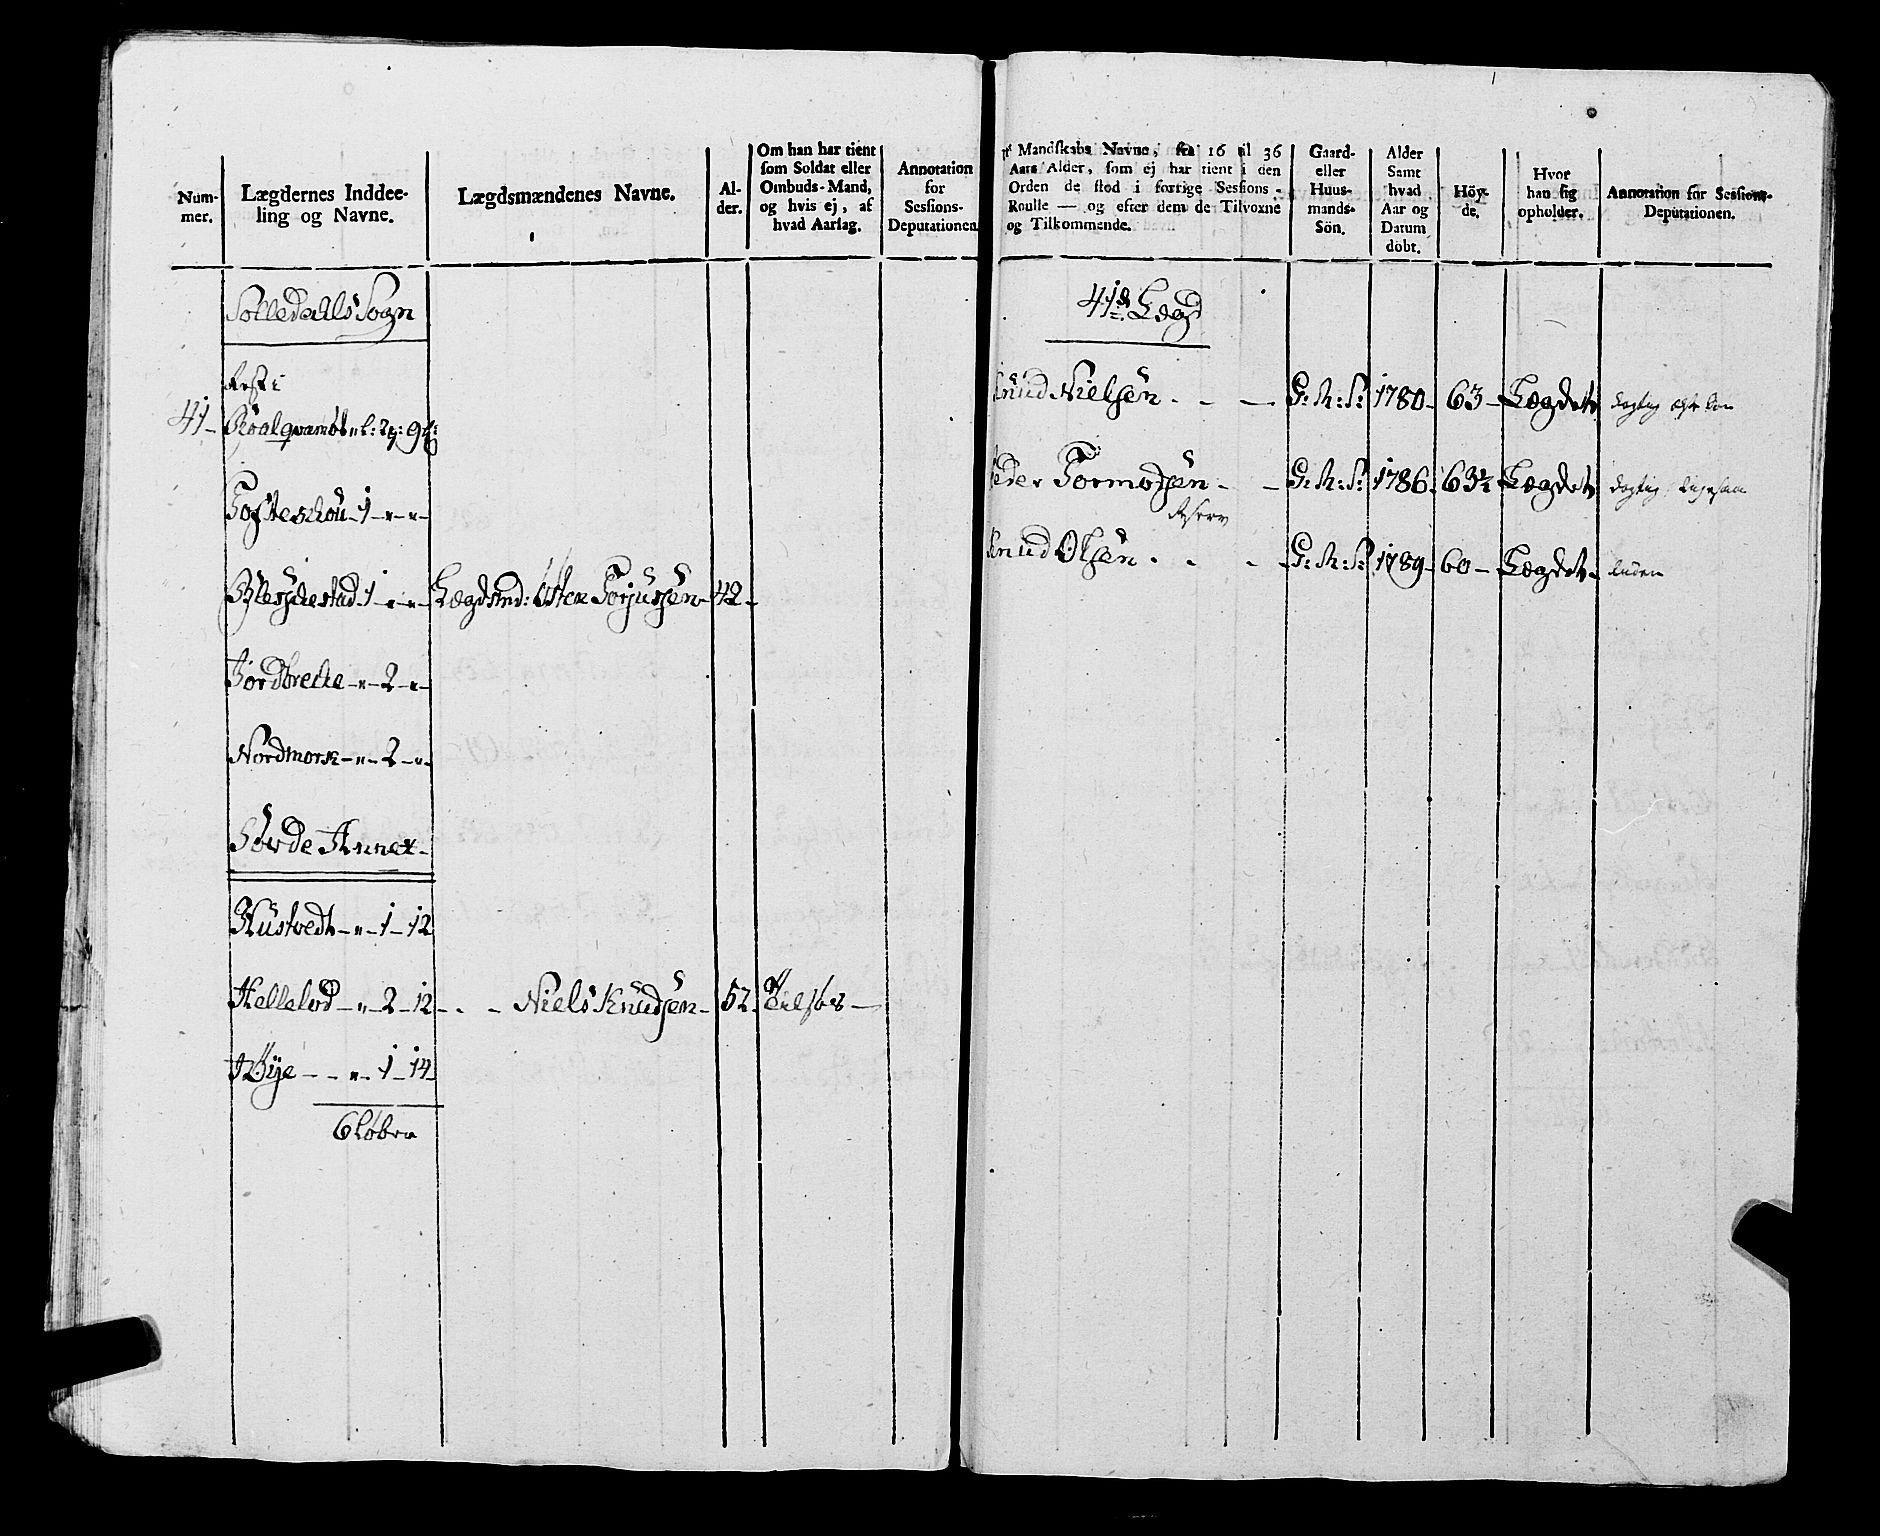 Num-
mer.
Lægdernes Inddee-
ling og Navne.
Lægdsmændenes Navne.
Al-
der.
Om han har tient
som Soldat eller
Ombuds-Mand,
og hvis ej, af
hvad Aarsag.
Annotation
for
Sessions-
Deputationen.
Solledahls Sogn
Rest i
41- Roalqvamb " l: 2 q: 9
Tofteschou - 1 - " - " -
Blesgiestad 1 - " - " - Lægdsmd: Østen Torjussen - 42 -
Jordbrecke - " - 2 - " -
Nordmork - " - 2 - " -
Hovde Annex -
Hustvedt - " - 1 - 12
Hellelod - " - 2 - 12 - - - Niels Knudsen - 52.
Bye - - " - 1 - 14
6 løber
Mandskabs Navne, fra 16 til 36
Aars Alder, som ej har tient i den
Orden de stod i forrige Sessions-
Roulle — og efter dem de Tilvoxne
og Tilkommende.
Gaard-
eller
Huus-
mands-
Sön.
Alder
Samt
hvad
Aar og
Datum
döbt.
Höy-
de.
Hvor
han sig
opholder.
Annotation for Sessions-
Deputationen.
41de Lægd
Knud Nielsen - - - G: M: S: 1780 - 63 - Lægdet dygtig
Peder Tormodsen - - G: M: S: 1786. 63½ Lægdet dygtig
Reserv
Knud Olsen - - - G: M: S: 1789 - 60 - Lægdet - liden